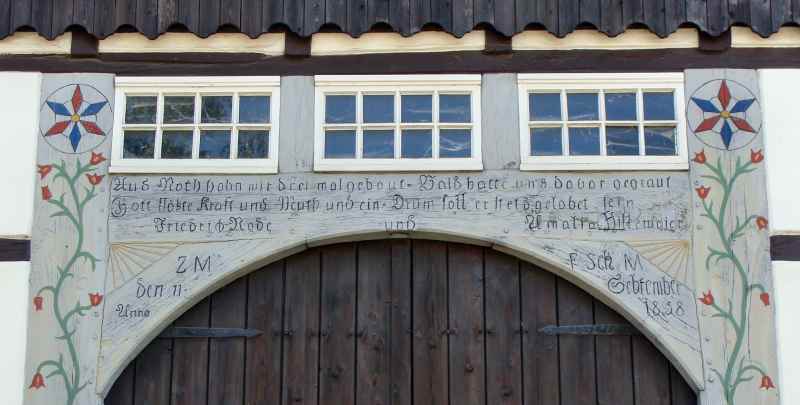 Aus Noth habn wir drei mal gebaut - Bald hatte uns davor gegraut
Gott flößte Kraft und Muth uns ein - Drum soll er stets gelobet sein
Friedrich Rade und Amalia Hiltemeier
Z M F Sch M
den 11. September
Anno 1858